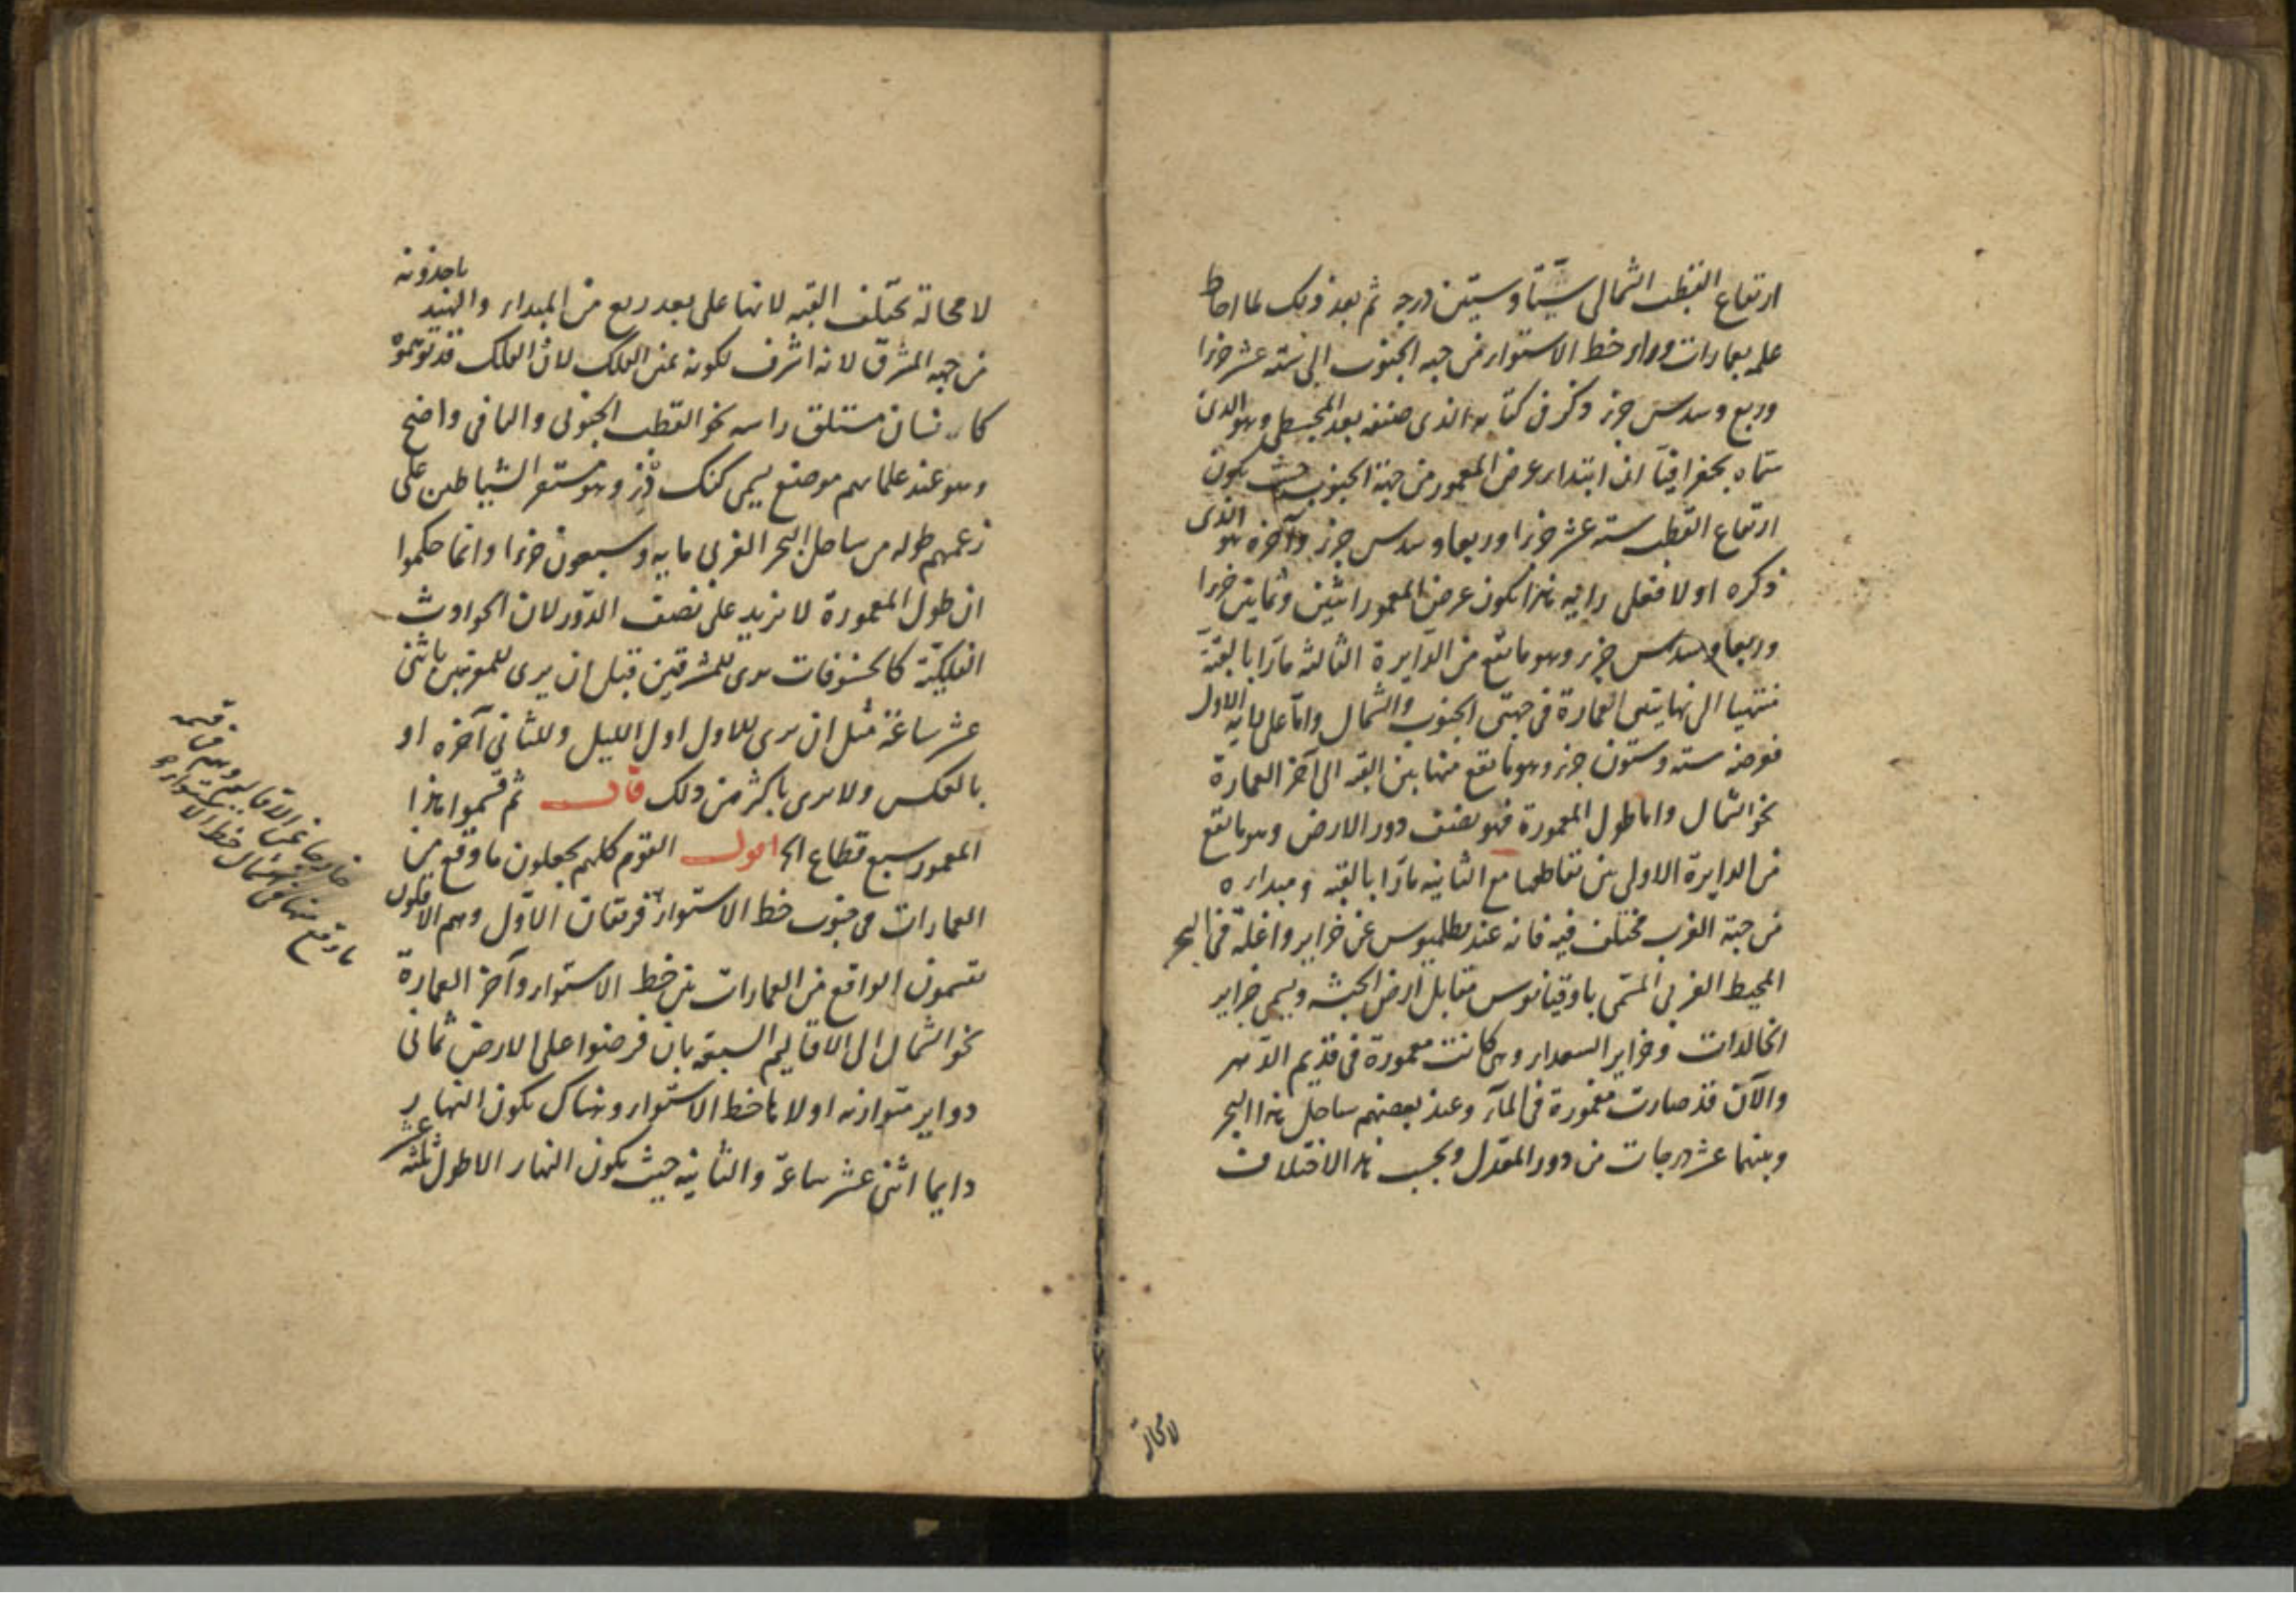 ارتفاع القطب الشمالى ستا وستين درجه ثم بعد ذلك لما احاط
علمه بعمارات وراء خط الاستواء من جهه الجنوب الى سته عشر جزءا
وربع وسدس جزء وذكر فى كتابه الذى صنفه بعد المجسطى وهو الذى
سماه بجغرافيا ان ابتداء عرض المعمور من جهة الجنوب حيث يكون
ارتفاع القطب سته عشر جزءا وربعا وسدس جزء وآخره هو الذى
ذكره اولا فعلى رايه هذا يكون عرض المعمور اثنين وثمانين جزءا
وربعا وسدس جزء وهو ما يقع من الدايرة الثالثه مارا بالقبة
منتهيا الى نهايتى العمارة فى جهتى الجنوب والشمال واما على رايه الاول
فعرضه سته وستون جزء وهو ما يقع منها بين القبه الى آخر العمارة
نحو الشمال واما طول المعمورة فهو نصف دور الارض وهو ما يقع
من الدايرة الاولى بين تقاطعها مع الثانيه مارا بالقبه ومبداءه
من جهة الغرب مختلف فيه فانه عند بطلميوس من جزاير واغلة فى البحر
المحيط الغربى المسمى باوقيانوس مقابل ارض الحبشه ويسمى جزاير
الخالدات وجزاير السعداء وهى كانت معمورة فى قديم الدهر
والآن قد صارت مغمورة فى الماء وعند بعضهم ساحل هذا البحر
وبينهما عشر درجات من دور المعدل وبحسب هذا الاختلاف
لامحالة
لا محالة تختلف القبه لانها على بعد ربع من المبداء والهند ياخذونه
من جهه المشرق لانه اشرف لكونه يمين الفلك لان الفلك قد توهموه
كانسان مستلق راسه نحو القطب الجنوبى والباقى واضح
وهو عند علمائهم موضع يسمى كنك دز وهو مستقر الشياطين على
زعمهم طوله من ساحل البحر الغربى مايه وسبعون جزءا وانما حكموا
ان طول المعمورة لا يزيد على نصف الدور لان الحوادث
الفلكية كالخسوفات يرى للمشرقيين قبل ان يرى للمغربيين باثنى
عشر ساعة مثل ان يرى للاول اول الليل وللثانى آخره او
بالعكس ولا يرى باكثر من ذلك قال ثم قسموا هذا
المعمور سبع قطاع الخ اقول القوم كلهم يجعلون ما وقع من
العمارات فى جنوب خط الاستواء فريقان الاول وهم الاكثرون
يقسمون الواقع من العمارات بين خط الاستواء وآخر العمارة
نحو الشمال الى الاقاليم السبعة بان فرضوا على الارض ثمانى
دواير متوازيه اولاها خط الاستواء وهناك يكون النهار
دايما اثنى عشر ساعة والثانيه حيث يكون النهار الاطول ثلثه عشر
خارجا عن الاقاليم وهم فى قسمه
ما وقع منها فى شمال خط الاستواء